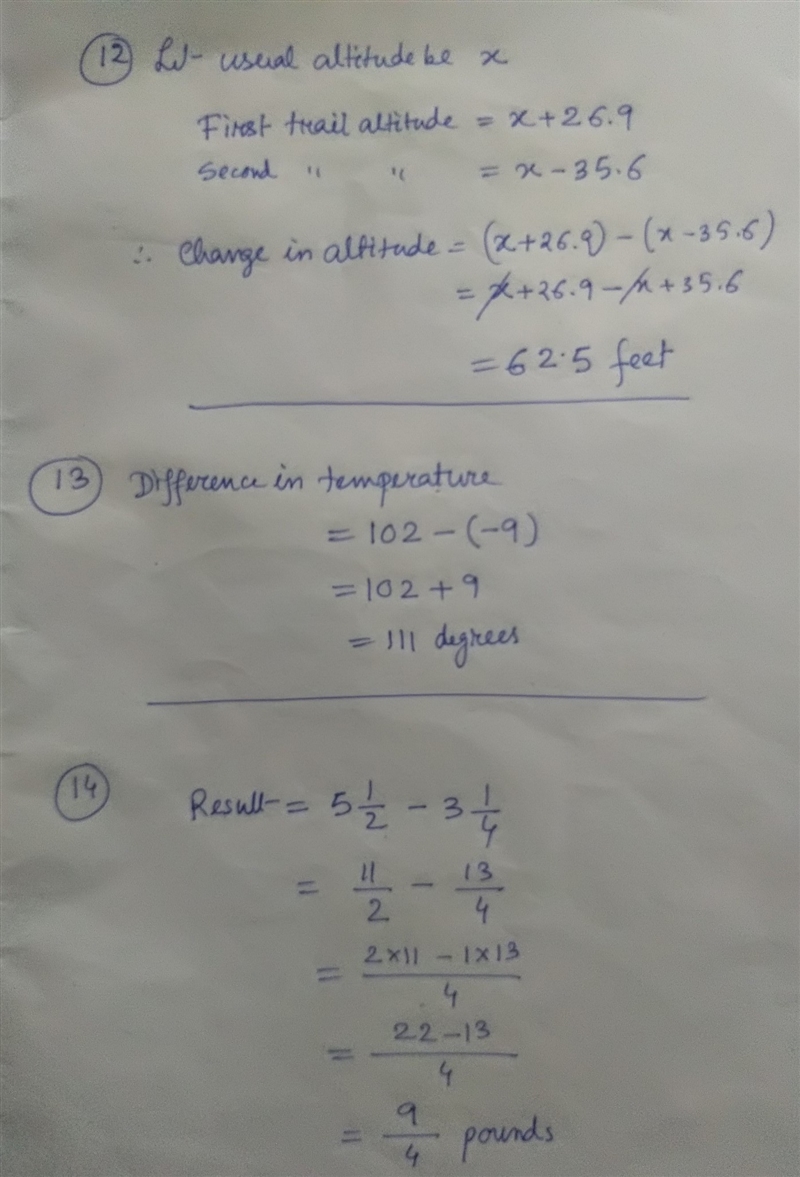 (12) Let usual altitude be x
First trail altitude = x + 26.9
Second " " = x - 35.6
∴ Change in altitude = (x+26.9) - (x-35.6)
= x + 26.9 - x + 35.6
= 62.5 feet
(13) Difference in temperature
= 102 - (-9)
= 102 + 9
= 111 degrees
(14) Result = 5 1/2 - 3 1/4
= 11/2 - 13/4
= (2×11 - 1×13)/4
= (22-13)/4
= 9/4 pounds